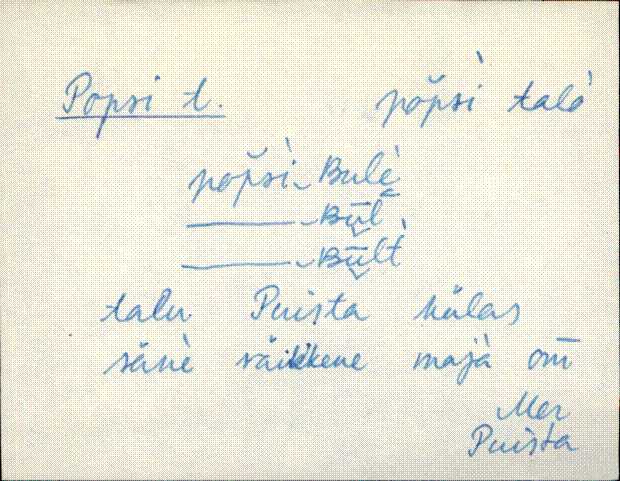 Popsi t. popšì talò
popšì ⌣ Bulè
——— ⌣ Būl̆
——— ⌣ Būlt̀
talu Puista külas
sänè väikkene majà om̄
Mer
Puista